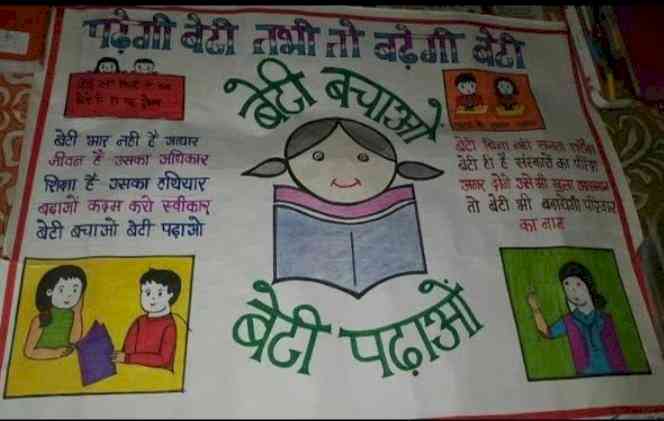 पढ़ेगी बेटी तभी तो बढ़ेगी बेटी
बेटी बचाओ
बेटी भार नही है आधार
जीवन हैं उसका अधिकार
शिक्षा हैं उसका हथियार
बढाओं कदम करो स्वीकार
बेटी बचाओ बेटी पढ़ाओ
बेटी बिना नही
बेटी ही है संस्कारो का
अगर दोगे उसे भी खुला आसमान
तो बेटी भी परिवार
का नाम
बेटी पढाओं